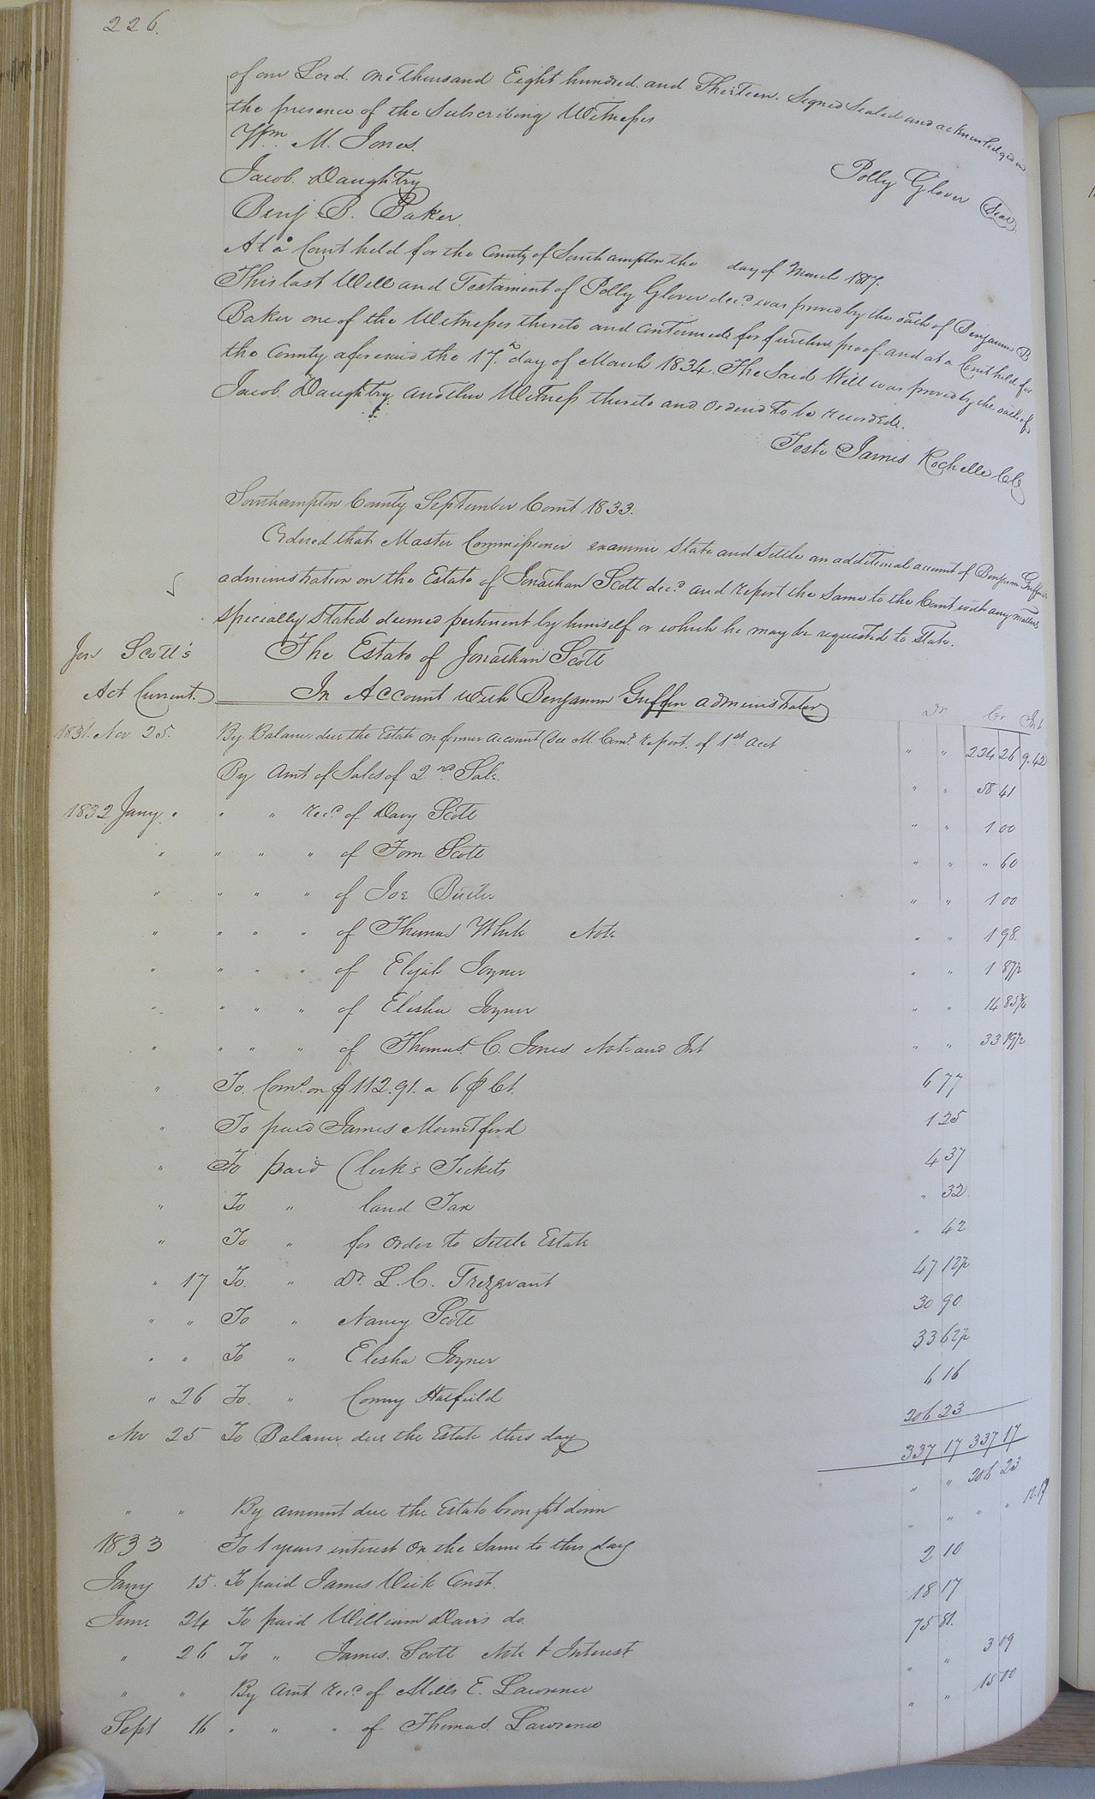 226.
of our Lord. One Thousand Eight hundred. and Thirteen. Signed Sealed and acknowledged in
the presence of the Subscribing Witnesses
Wm. M. Jones.
Jacob. Daughtry
Polly Glover (Seal)
Benj B. Baker
At a Court held for the County of Southampton the day of March 1817.
This last Will and Testament of Polly Glover decd. was proved by the oath of Benjamin B
Baker one of the Witnesses thereto and continued for further proof. and at a Court held for
the County aforesaid the 17th day of March 1834. The Said Will was proved by the oath of
Jacob. Daughtry. another Witness thereto and ordered to be recorded.
Teste James Rochelle CC
Southampton County September Court 1833.
Ordered that Master Commissioner examine State and Settle an additional account of Benjamin Griffin
administration on the Estate of Jonathan Scott decd. and report the Same to the Court with any matters
specially Stated deemed pertinent by himself or which he may be requested to State.
Jon Scott's The Estate of Jonathan Scott
Act Current. In Account with Benjamin Griffin administrator
Dr Cr Int
1831. Nov 25. By Balance due the Estate on former account (See M. Comr. report. of 1st acct " " 234 26 9.42
By Amt of Sales of 2nd Sale " " 58 41
1832 Jany. " " " Recd of Davy Scott " " 1 00
" " " " of Tom Scott " " " 60
" " " " of Joe " " 1 00
" " " " of Thomas White Note " " 1 98
" " " " of Elijah Joyner " " 1 87½
" " " " of Elisha Joyner " " 14
" " " " of Thomas C. Jones Note and Int " " 33 19½
" To Coms. on $112.91. a 6 p Ct. 6 77
" To paid James Mountford 1 25
" To paid Clerk's Tickets 4 37
" To " land Tax " 32
" To " for Order to Settle Estate " 42
" 17 To. " Dr. L. C. Trezevant 47 12½
" " To " Nancy Scott 30 90
" " To " Elisha Joyner 33 62½
" 26 To. " Conny Hatfield 6 16
Nov 25 To Balance due the Estate this day 206 23
337 17 337 17
" " By amount due the Estate brought down " " 206 23
1833 To 1 years interest on the Same to this day " " "
Jany 15. To paid James Wick Const. 2 10
June. 24 To paid William Davis do. 18 17
" 26 To " James. Scott Note & Interest 75 81.
" " By Amt Recd of Mills E. Lawrence " " 3 09
Sept 16 " " " of Thomas Lawrence " " 15 00